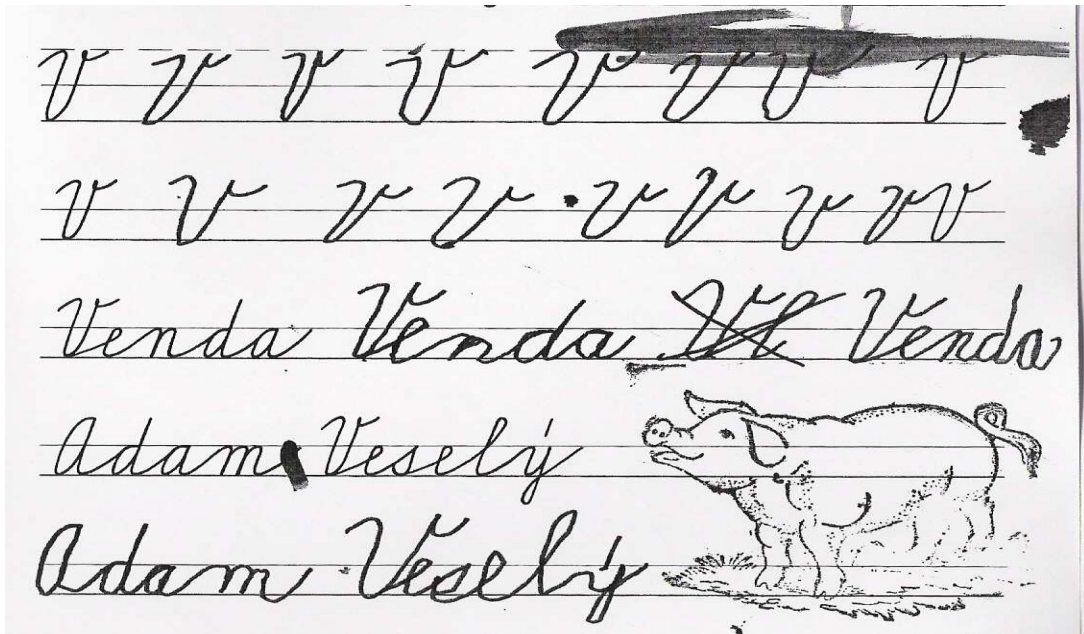 V V V V V V V V
V V V V V V V V V
Venda Venda Ve Venda
Adam Veselý
Adam Veselý